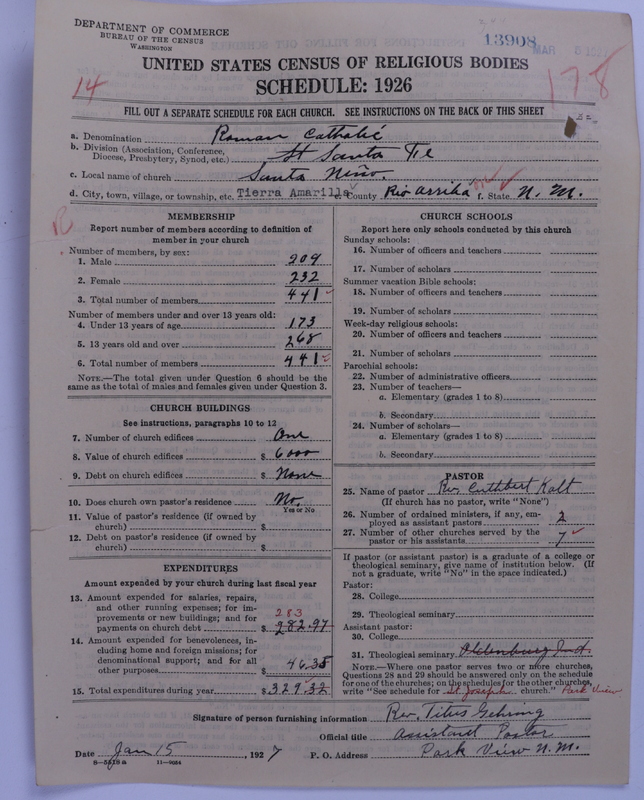 DEPARTMENT OF COMMERCE
BUREAU OF THE CENSUS
WASHINGTON
13908
MAR
UNITED STATES CENSUS OF RELIGIOUS BODIES
SCHEDULE: 1926
14
178
FILL OUT A SEPARATE SCHEDULE FOR EACH CHURCH. SEE INSTRUCTIONS ON THE BACK OF THIS SHEET
a. Denomination Roman Catholic
b. Division (Association, Conference, Diocese, Presbytery, Synod, etc.) Santa Fe
c. Local name of church Santo Niño.
d. City, town, village, or township, etc. Tierra Amarilla e. County Rio Arriba f. State N. M.
R
MEMBERSHIP
Report number of members according to definition of
member in your church
Number of members, by sex:
1. Male 209
2. Female 232
3. Total number of members 441
Number of members under and over 13 years old:
4. Under 13 years of age 173
5. 13 years old and over 268
6. Total number of members 441
NOTE.—The total given under Question 6 should be
same as the total of males and females given under Question 3.
CHURCH BUILDINGS
See instructions, paragraphs 10 to 12
7. Number of church edifices One
8. Value of church edifices $ 6000
9. Debt on church edifices $ None
10. Does church own pastor's residence No.
Yes or No
11. Value of pastor's residence (if owned by
church) $
12. Debt on pastor's residence (if owned by
church) $
EXPENDITURES
Amount expended by your church during last fiscal year
13. Amount expended for salaries, repairs,
and other running expenses; for im-
provements or new buildings; and for
payments on church debt $ 282.97
283
14. Amount expended for benevolences, in-
cluding home and foreign missions; for
denominational support; and for all
other purposes $ 46.35
15. Total expenditures during year $ 329.32
CHURCH SCHOOLS
Report here only schools conducted by this church
Sunday schools:
16. Number of officers and teachers
17. Number of scholars
Summer vacation Bible schools:
18. Number of officers and teachers
19. Number of scholars
Week-day religious schools:
20. Number of officers and teachers
21. Number of scholars
Parochial schools:
22. Number of administrative officers
23. Number of teachers—
a. Elementary (grades 1 to 8)
b. Secondary
24. Number of scholars—
a. Elementary (grades 1 to 8)
b. Secondary
PASTOR
25. Name of pastor Rev. Cuthbert Kalt
(If church has no pastor, write "None")
26. Number of ordained ministers, if any, em-
ployed as assistant pastors 2
27. Number of other churches served by the
pastor or his assistants 7
If pastor (or assistant pastor) is a graduate of a college or
theological seminary, give name of institution below. (If
not a graduate, write "No" in the space indicated.)
Pastor:
28. College
29. Theological seminary
Assistant pastor:
30. College
31. Theological seminary Oldenburg Ind.
NOTE.—Where one pastor serves two or more churches,
Questions 28 and 29 should be answered only on the schedule
for one of the churches; on the schedules for the other churches,
write "See schedule for St Joseph church." Park View
Signature of person furnishing information Rev. Titus Gehring
Official title Assistant Pastor
Date Jan 15, 1927 P. O. Address Park View N. M.
11—9084